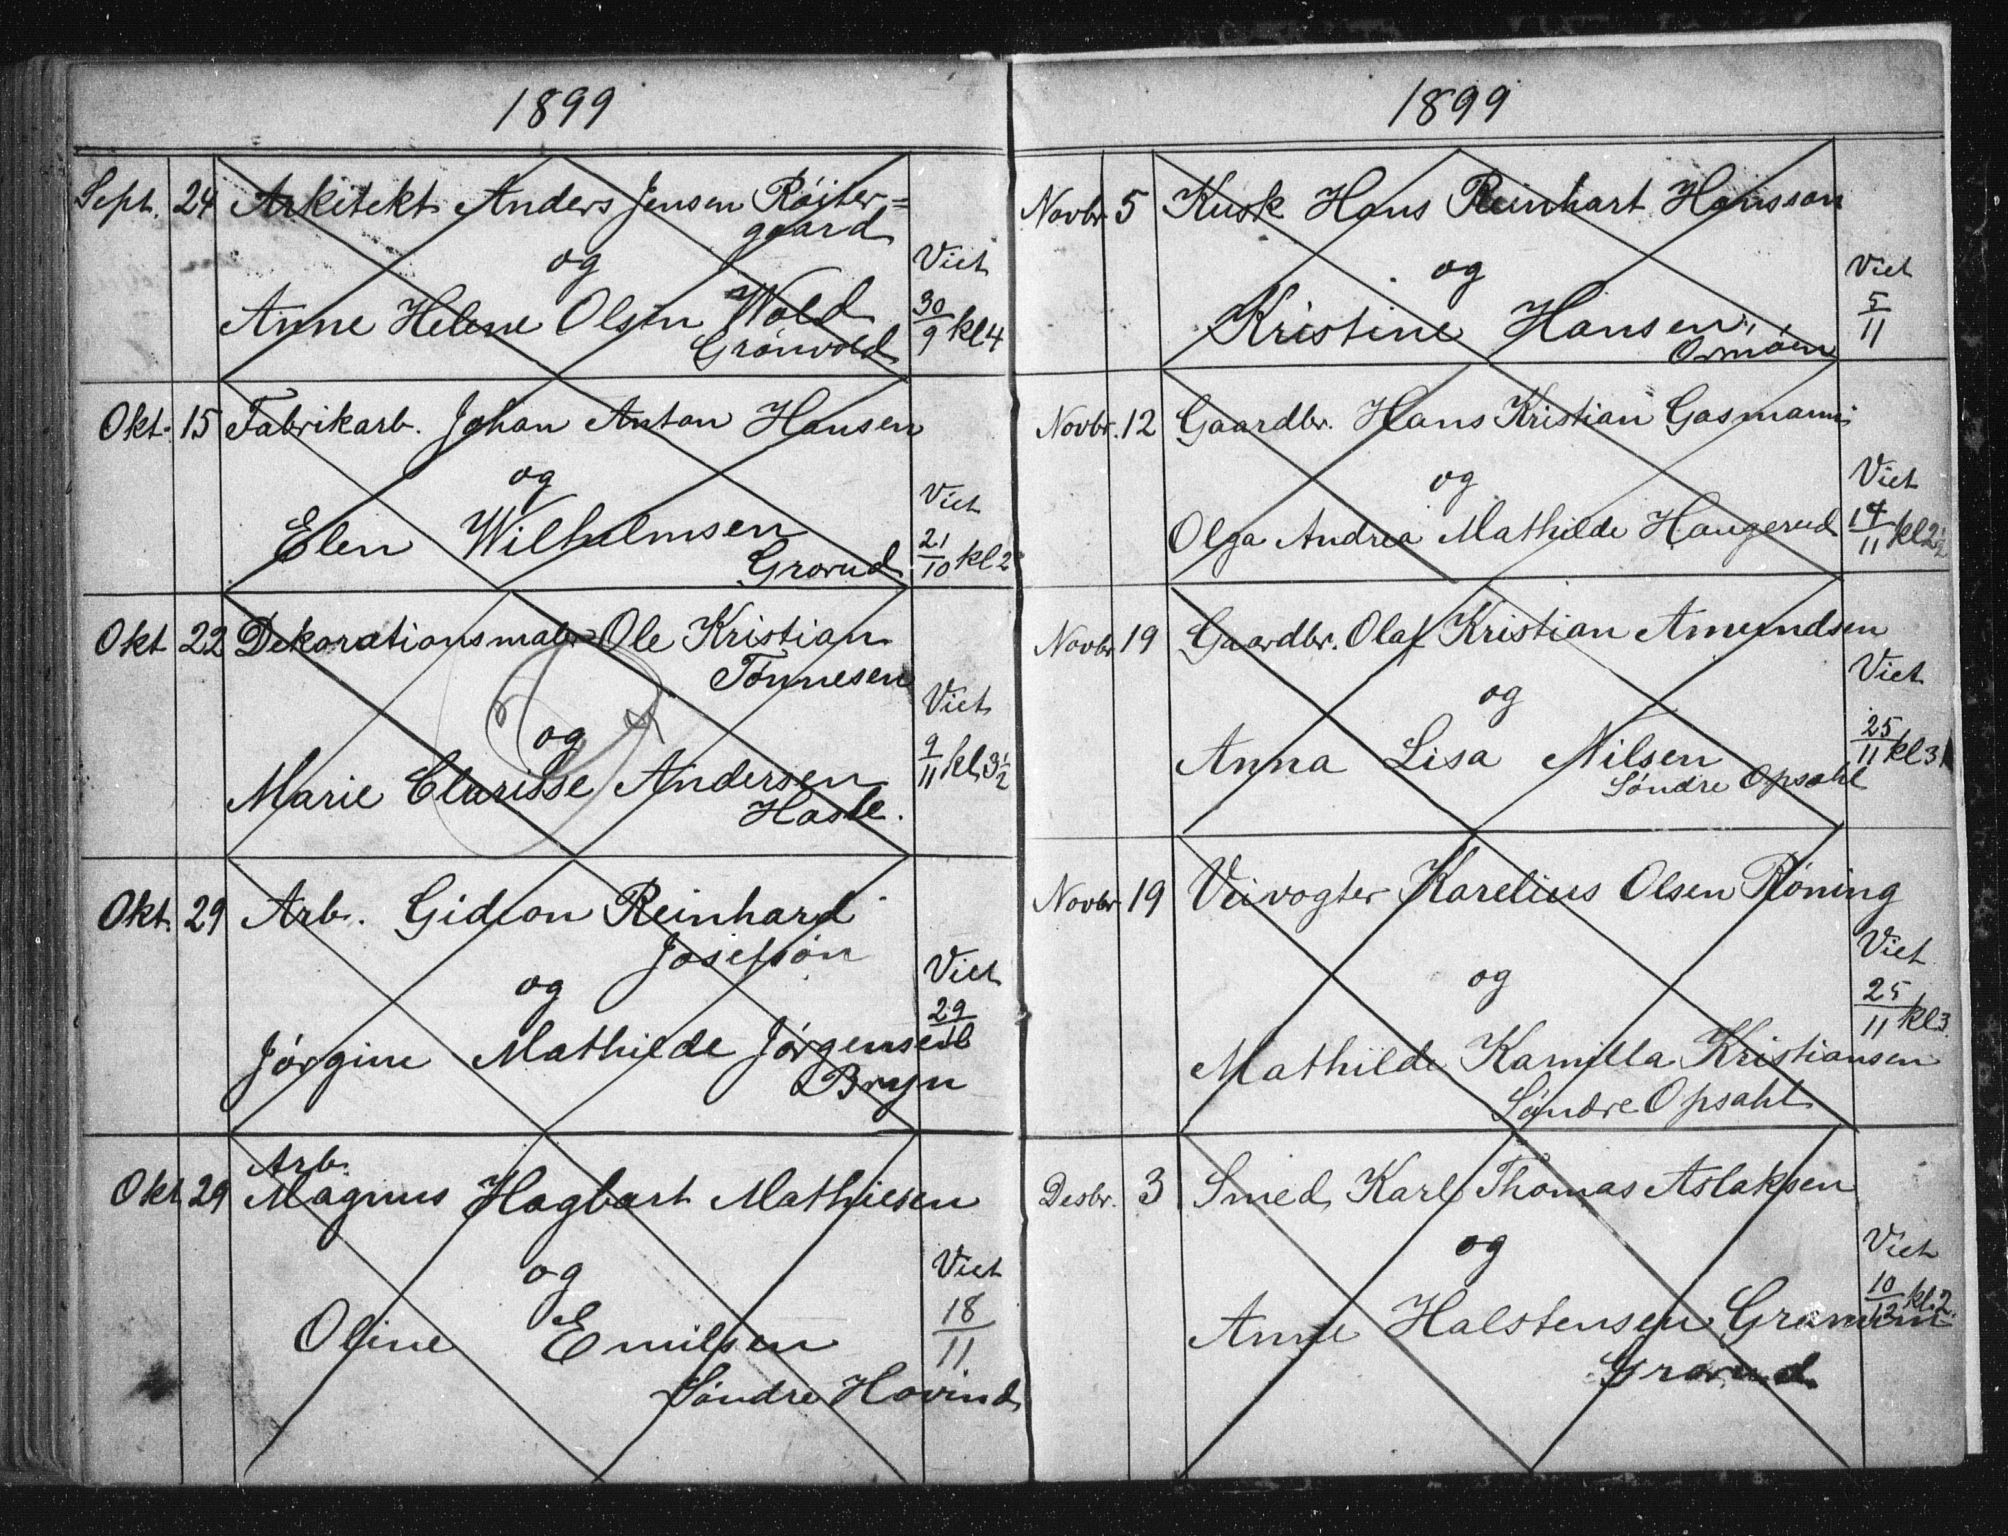 1899
Sept. 24 Arkitekt Anders Jensen Röiter=
gaard
og
Viet
Anne Helene Olsen Wold 30/9 kl 4
Grönvold
Okt. 15 Fabrikarb. Johan Anton Hansen
og
Viet
Elen Wilhelmsen 21/10 kl 2
Grorud
Okt 22 Dekorationsmaler Ole Kristian
Tönnesen
Viet
og
9/11 kl 3½
Marie Clarisse Andersen
Hasle.
Okt. 29 Arb. Gideon Reinhard
Josefsön
og
Viet
29/10
Jørgine Mathilde Jørgensen
Bryn
Arb.
Okt 29 Magnus Hagbart Mathiesen
og
Viet
18/11
Oline Emilsen
Søndre Hovind
1899
Novbr. 5 Kusk Hans Reinhart Hansson
og
Viet
5/11
Kristine Hansen,
Ormöen
Novbr. 12 Gaardbr. Hans Kristian Gasmann
og
Viet
Olga Andrea Mathilde Haugerud 14/11 kl 2½
Novbr 19 Gaardbr. Olaf Kristian Amundsen
Viet
og
25/11 kl 3
Anna Lisa Nilsen
Søndre Opsahl
Novbr 19 Veivogter Karelius Olsen Röning
Viet
og
25/11 kl 3
Mathilde Kamilla Kristiansen
Søndre Opsahl
Desbr. 3 Smed Karl Thomas Aslaksen
og
Viet
10/12 kl. 2
Anne Halstensen
Grorud